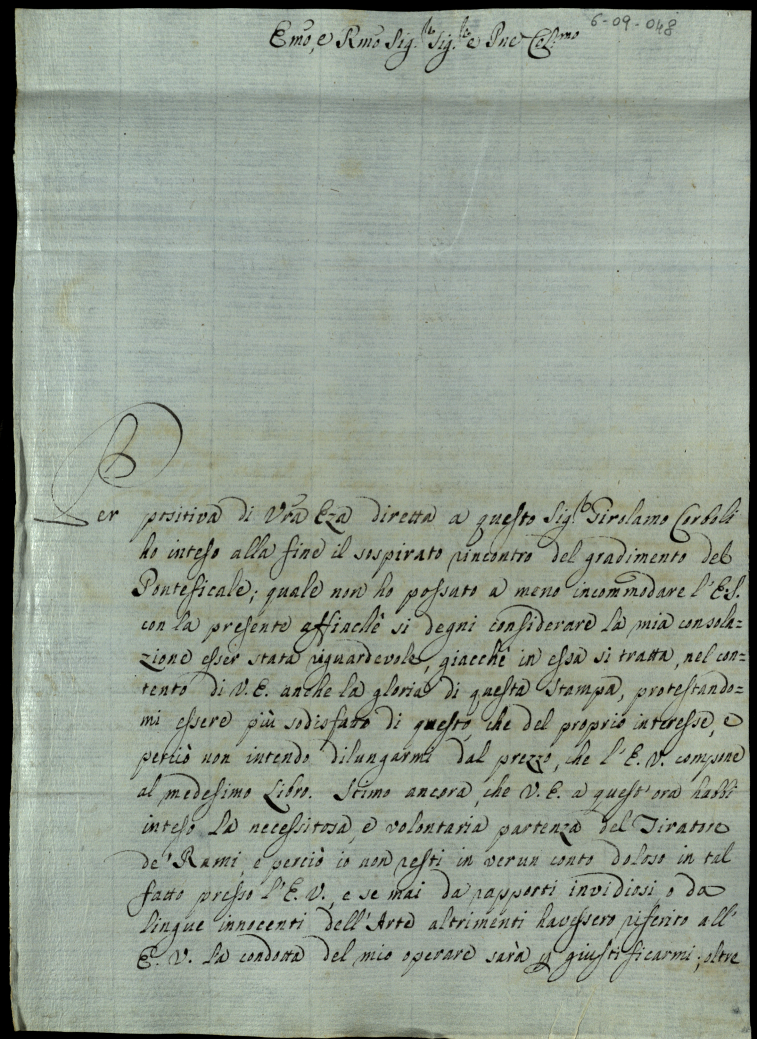 6-09-048
Emo, e Rmo Sig.re Sig.re e Pne Col.mo
Per positiva di Vra Eza diretta a questo Sig.r Girolamo Corboli
ho inteso alla fine il sospirato rincontro del gradimento del
Ponteficale; quale non ho possuto a meno incommodare l'E.S.
con la presente affinchè si degni considerare la mia consola=
zione esser stata riguardevole, giacchè in essa si tratta, nel con=
tento di V.E. anche la gloria di questa stampa, protestando=
mi essere più sodisfatto di questo, che del proprio interesse, e
perciò non intendo dilungarmi dal prezzo, che l'E.V. compone
al medesimo Libro. Stimo ancora, che V.E. a quest'ora habbi
inteso la necessitosa, e volontaria partenza del Tiratore
de' Rami, e perciò io non resti in verun conto doloso in tal
fatto presso l'E.V., e se mai da rapporti invidiosi o da
lingue innocenti dell'Arte altrimenti havessero riferito all'
E.V. la condotta del mio operare sarà p giustificarmi; oltre